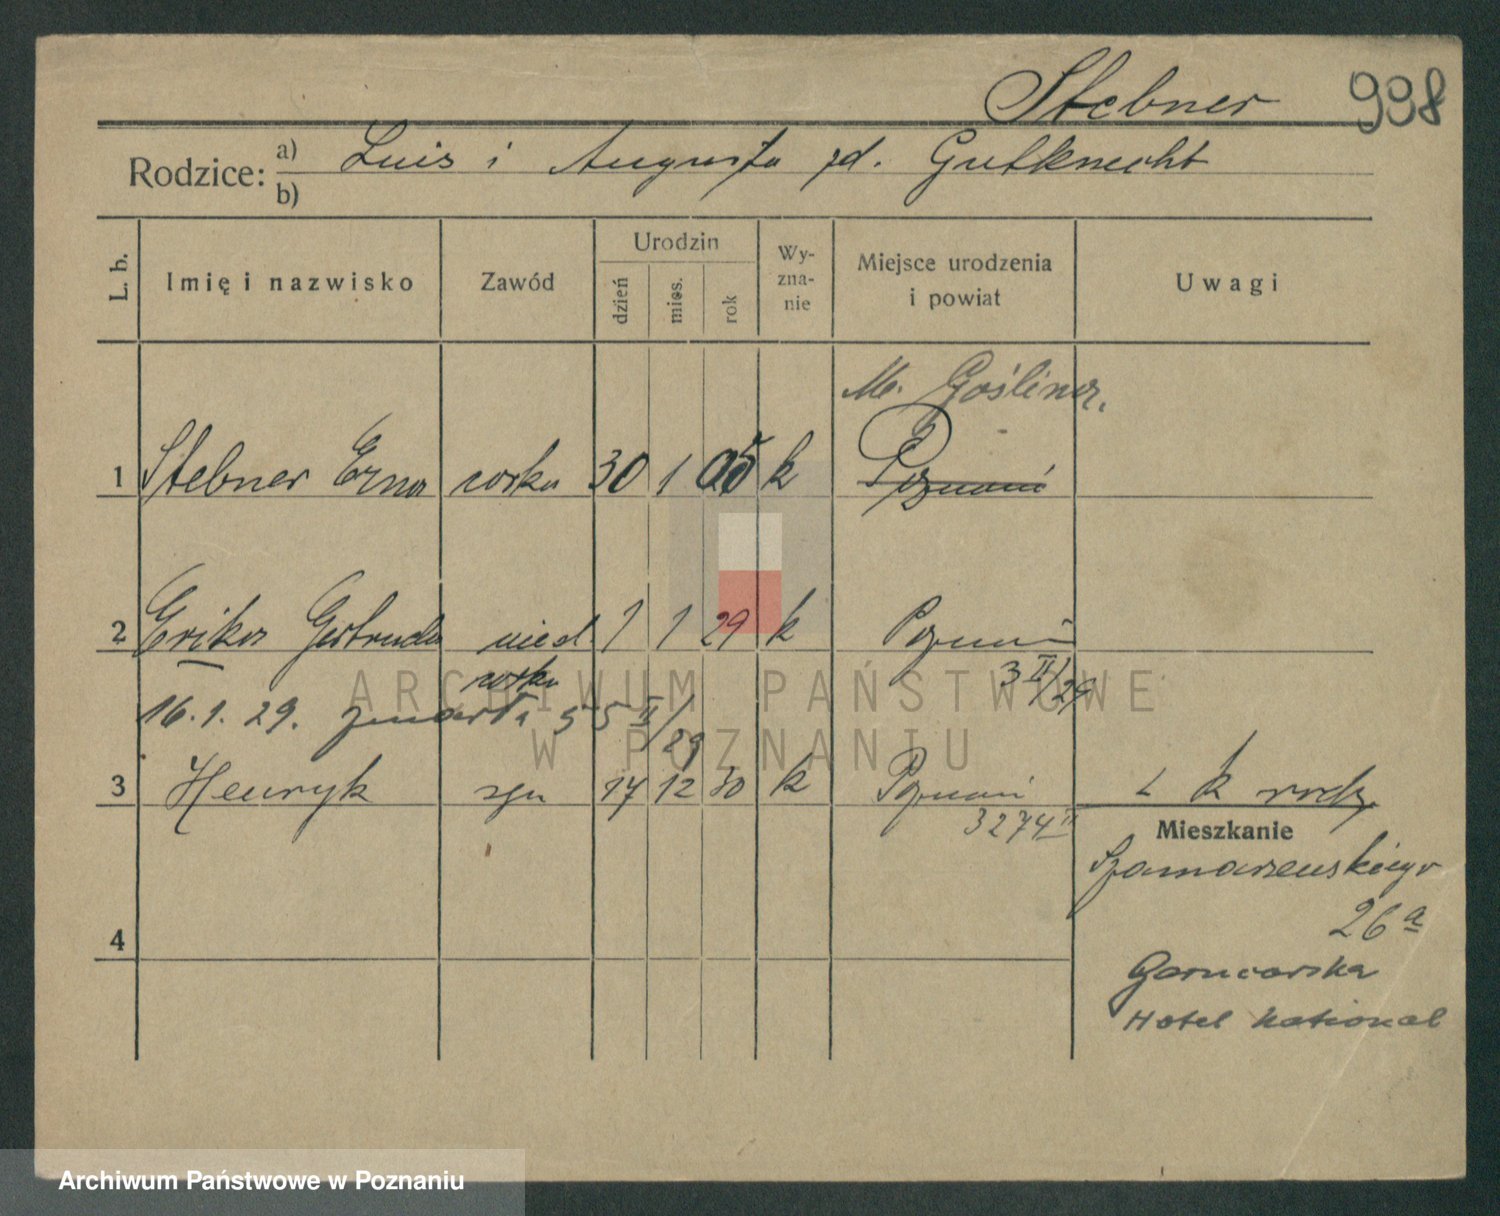 Stebner 998
Rodzice: a) Luis i Augusta zd. Gutknecht
b)
L. b. Imię i nazwisko Zawód Urodzin dzień mies. rok Wy-zna-nie Miejsce urodzenia i powiat Uwagi
M. Goślina.
1 Stebner Erna corka 30 1 05 k Poznań
2 Erika Gertruda nied. 1 1 29 k Poznań
corka 3 II/29
16.1.29. zmarła 5 II/29
3 Henryk syn 14 12 30 k Poznań k
3274 II
Mieszkanie
Szamarzewskiego
26a
4
Garncarska
Hotel National
ARCHIWUM PAŃSTWOWE
W POZNANIU
Archiwum Państwowe w Poznaniu